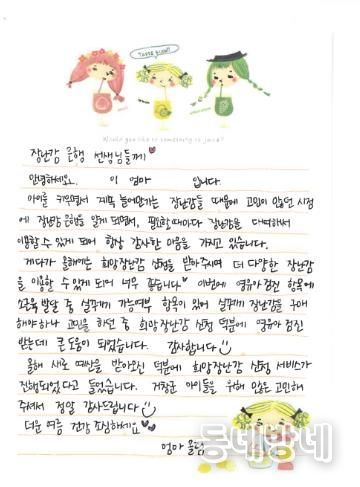 Taste good!
Would you like to something to juice?
장난감 은행 선생님들께
안녕하세요. 이 엄마 입니다.
아이를 키우면서 계속 늘어만가는 장난감들 때문에 고민이 많았던 시점
에 장난감 은행을 알게 되면서, 필요할때마다 장난감을 대여해서
이용할 수 있게 되어 항상 감사한 마음을 가지고 있습니다.
게다가 올해에는 희망장난감 신청을 받아주시며 더 다양한 장난감
을 이용할 수 있게 되어 너무 좋습니다! 이번에 영유아검진 항목에
소근육 발달 중 실꿰기 가능여부 항목이 있어 실꿰기 장난감을 구매
해야하나 고민을 하던 중 희망장난감 신청 덕분에 영유아 검진
받는데 큰 도움이 되었습니다. 감사합니다
올해 새로 예산을 받아오신 덕분에 희망장난감 신청 서비스가
진행되었다고 들었습니다. 거창군 아이들을 위해 오늘도 고민해
주셔서 정말 감사드립니다
더운 여름 건강 조심하세요
엄마 올림
동네방네